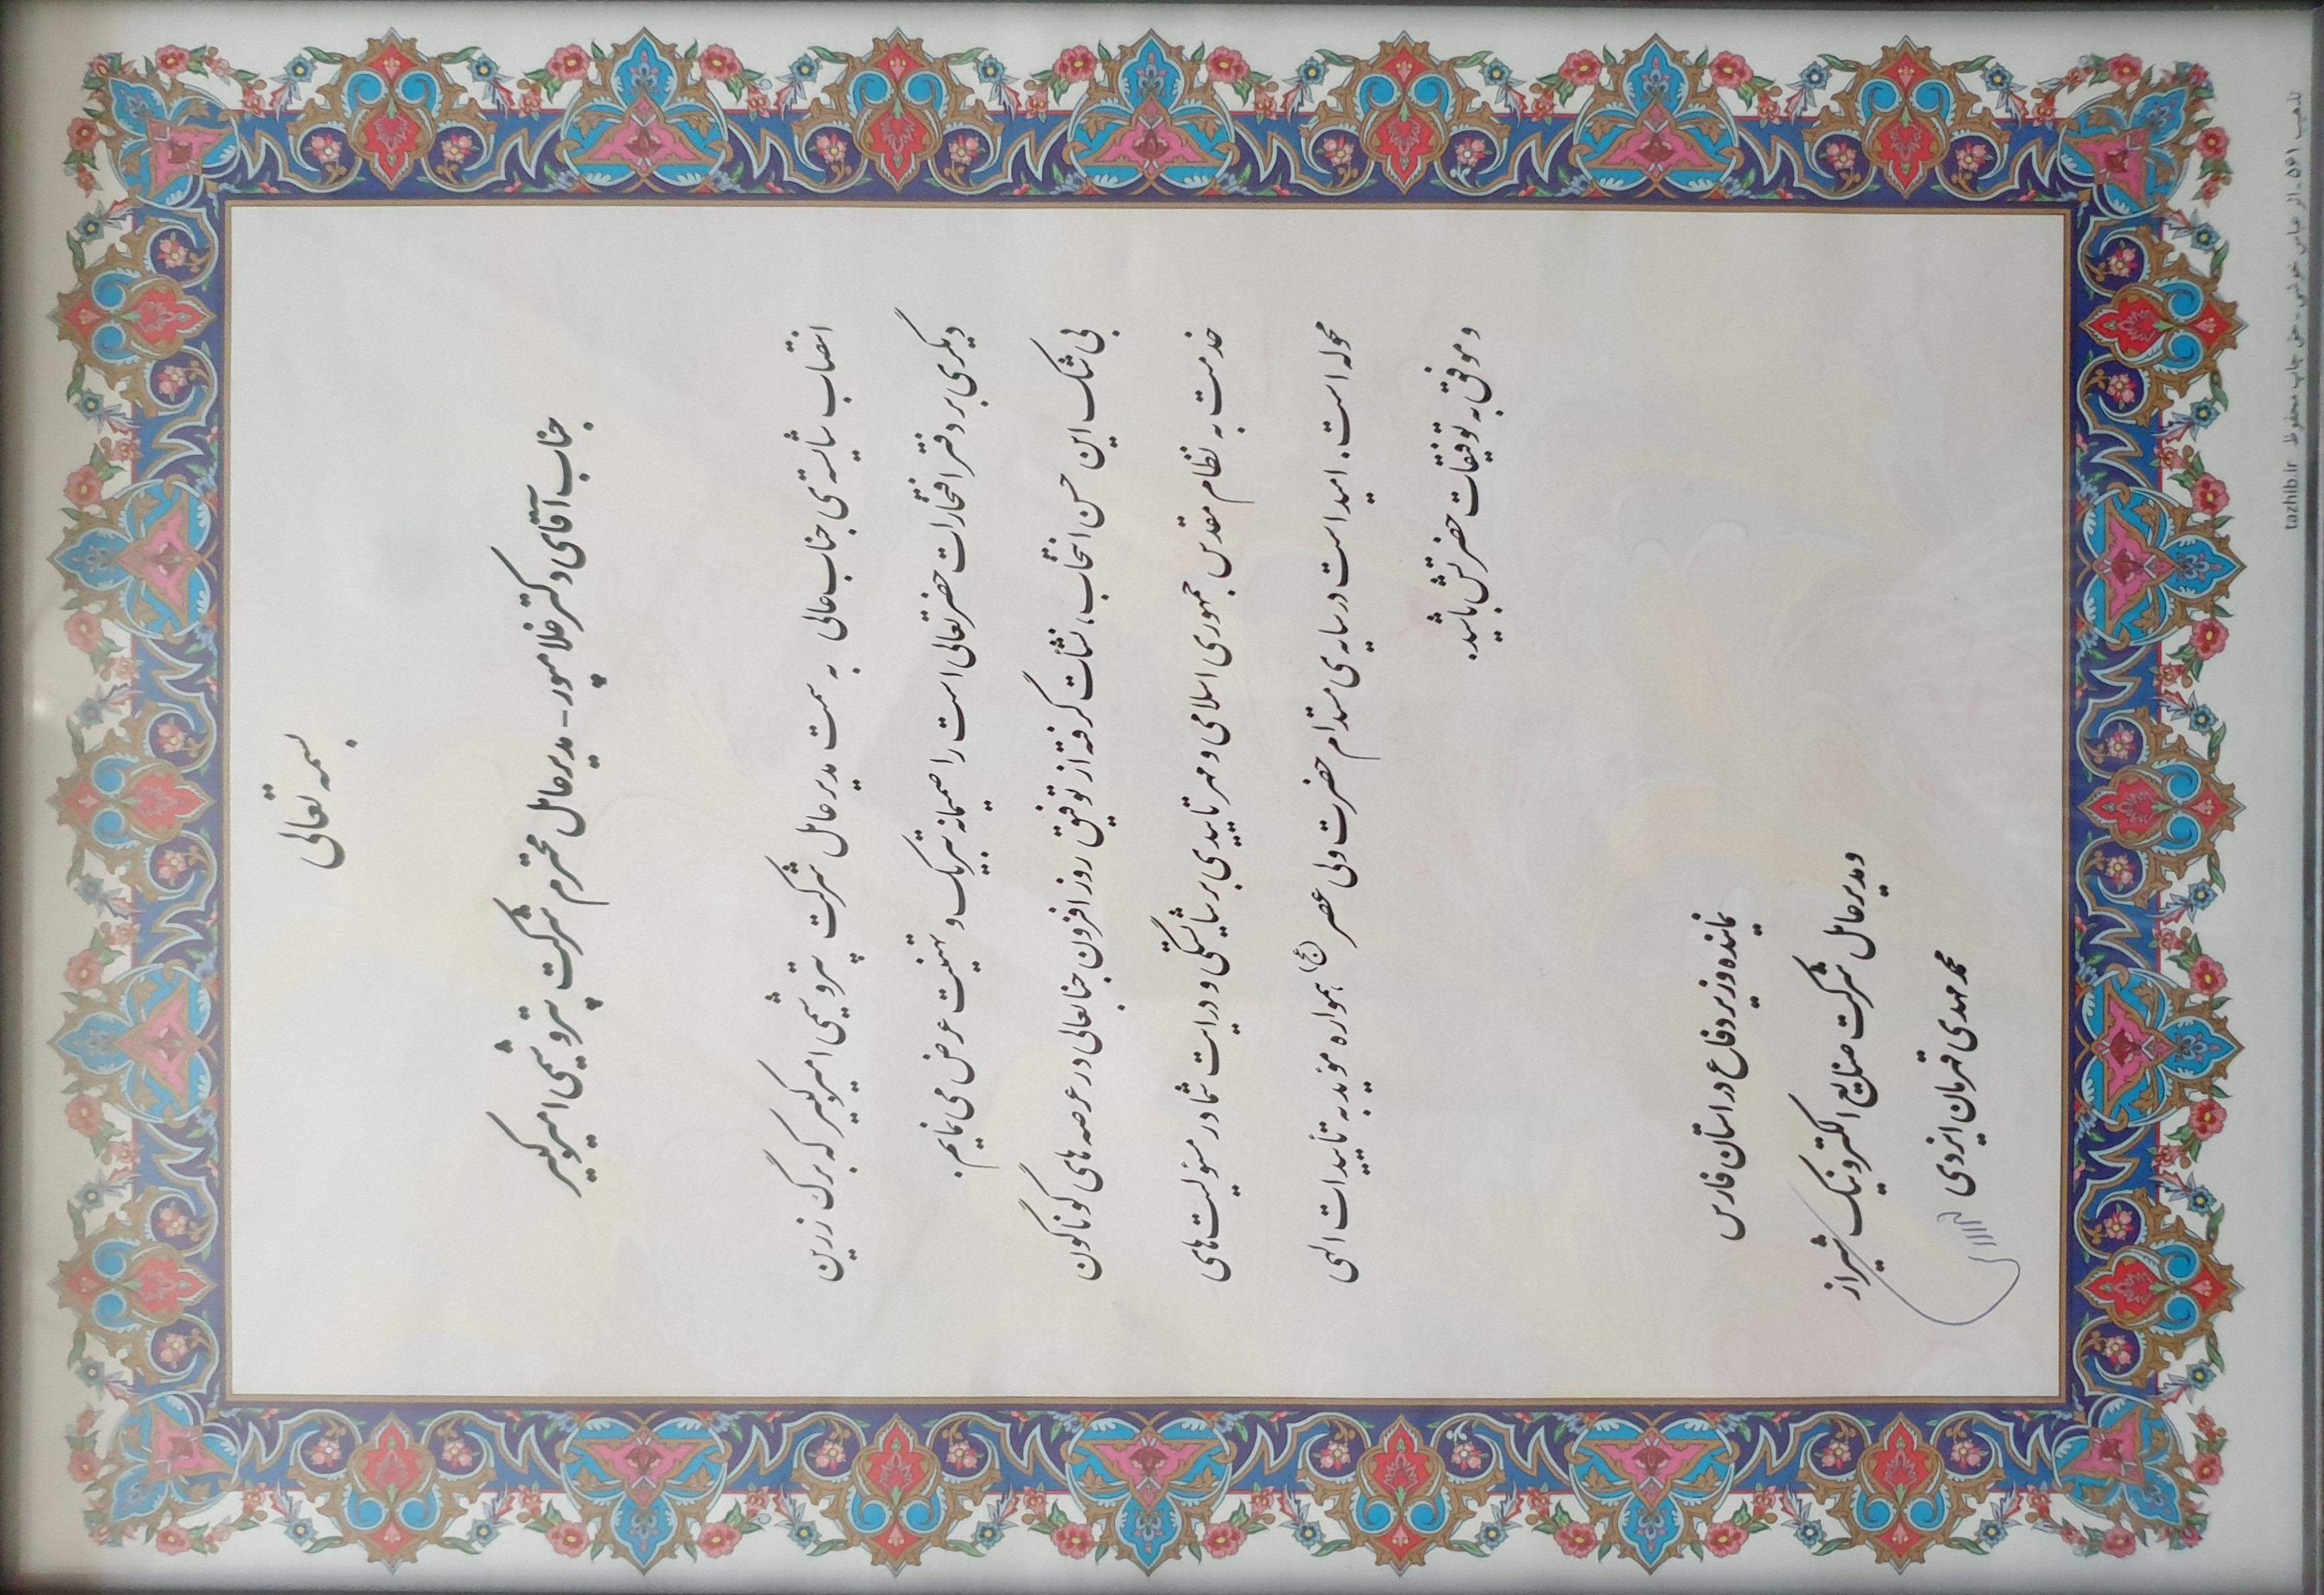 بسمه تعالی
جناب آقای دکتر غلامپور - مدیرعامل محترم شرکت پتروشیمی امیرکبیر
انتصاب شایسته‌ی جناب عالی به سمت مدیرعامل شرکت پتروشیمی امیرکبیر که برگ زرین
دیگری بر دفتر افتخارات حضرتعالی است را صمیمانه تبریک و تهنیت عرض می نمایم.
بی شک این حسن انتخاب، نشأت گرفته از توفیق روزافزون جنابعالی در عرصه های گوناگون
خدمت به نظام مقدس جمهوری اسلامی و مهر تاییدی بر شایستگی و درایت شما در مسئولیت های
محوله است. امید است در سایه‌ی مستدام حضرت ولی عصر (عج) همواره مؤید به تأییدات الهی
و موفق به توفیقات حضرتش باشید.
نماینده وزیر دفاع در استان فارس
و مدیرعامل شرکت صنایع الکترونیک شیراز
محمدمهدی قهرمان ایزدی
تذهیب ۵۶۱ - اثر عباس خوشی - حق چاپ محفوظ tazhib.ir